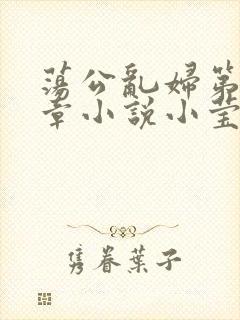 蕩公亂婦第
章小說小莹
隽眷葉子